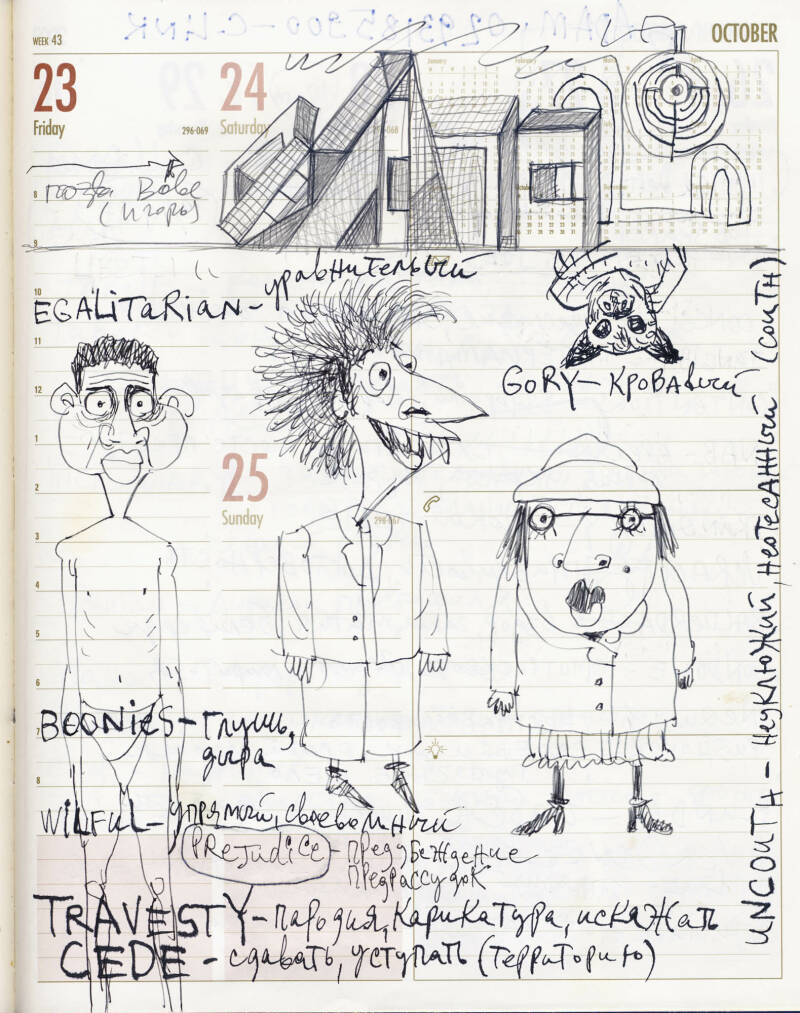 WEEK 43
OCTOBER
23
Friday
296-069
24
Saturday
8
9
поэта Bobe
(Игорь)
EGALITARIAN – уравнительный
GORY – КРОВАВЫЙ
10
11
12
1
2
25
Sunday
298-067
3
4
5
6
BOONIES – Глушь,
дыра
7
8
WILFUL – упрямый, своевольный
PREJUDICE – ПРЕДУБЕЖДЕНИЕ
ПРЕДРАССУДОК
TRAVESTY – пародия, карикатура, искажать
CEDE – сдавать, уступать (территорию)
UNCOUTH – НЕУКЛЮЖИЙ, НЕОТЕСАННЫЙ (COUTH)